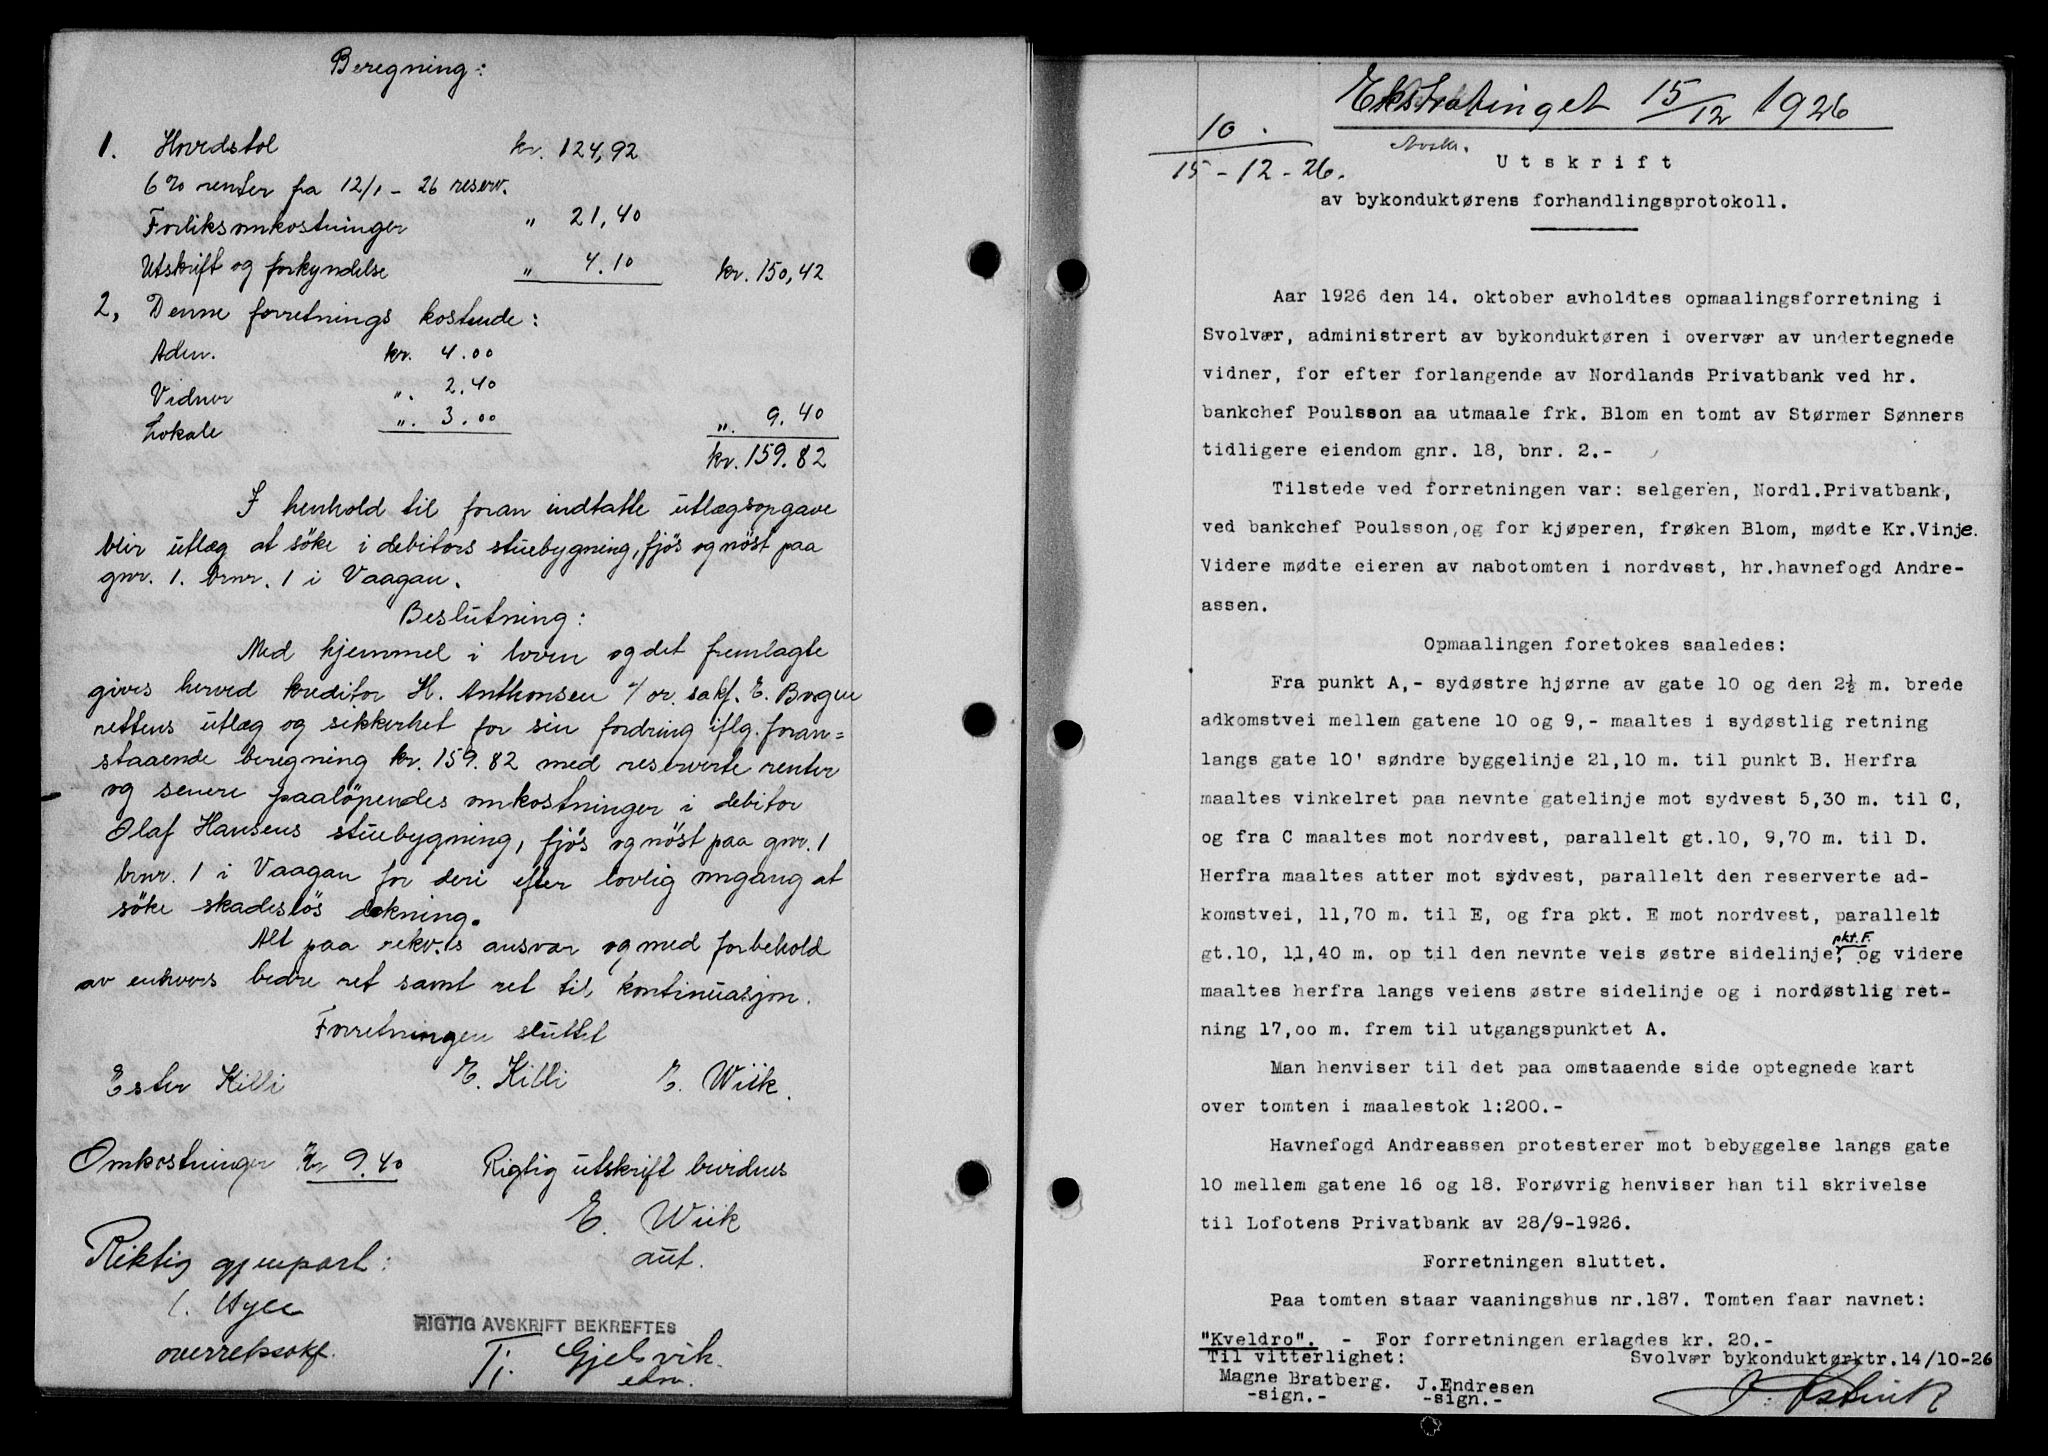 Beregning:
1. Hovedstol kr. 124,92
6% renter fra 12/1 - 26 reserv.
Forliksomkostninger " 21,40
Utskrift og forkyndelse " 4.10 kr. 150,42
2, Denne forretnings kostende:
Adm. kr. 4.00
Vidner ". 2.40
Lokale ". 3.00 ". 9.40
kr. 159.82
I henhold til foran indtatte utlægsopgave
blir utlæg at söke i debitors stuebygning, fjös og nöst paa
gnr. 1. bnr. 1 i Vaagan.
Beslutning:
Med hjemmel i loven og det fremlagte
gives herved kreditor H. Anthonsen v/ or. sakf. E. Bogen
rettens utlæg og sikkerhet for sin fordring iflg. foran=
staaende beregning kr. 159.82 med reserverte renter
og senere paalöpendes omkostninger i debitor
Olaf Hansens stuebygning, fjös og nöst paa gnr. 1
bnr. 1 i Vaagan for deri efter lovlig omgang at
söke skadeslös dekning.
Alt paa rekv.s ansvar og med forbehold
av enhvers bedre ret samt ret til kontinuasjon.
Forretningen sluttet
Ester Killi E. Killi E. Wiik.
Omkostninger Kr 9.40 Rigtig utskrift bevidnes
E. Wiik
aut.
Riktig gjenpart:
overretssakf.
RIGTIG AVSKRIFT BEKREFTES
Tj. Gjelsvik.
edm.
Ekstratinget 15/12 1926
10.
15-12-26.
Avskr.
Utskrift
av bykonduktørens forhandlingsprotokoll.
Aar 1926 den 14. oktober avholdtes opmaalingsforretning i
Svolvær, administrert av bykonduktøren i overvær av undertegnede
vidner, for efter forlangende av Nordlands Privatbank ved hr.
bankchef Poulsson aa utmaale frk. Blom en tomt av Størmer Sønners
tidligere eiendom gnr. 18, bnr. 2.-
Tilstede ved forretningen var: selgeren, Nordl.Privatbank,
ved bankchef Poulsson, og for kjøperen, frøken Blom, mødte Kr.Vinje.
Videre mødte eieren av nabotomten i nordvest, hr.havnefogd Andre-
assen.
Opmaalingen foretokes saaledes:
Fra punkt A,- sydøstre hjørne av gate 10 og den 2½ m. brede
adkomstvei mellem gatene 10 og 9,- maaltes i sydøstlig retning
langs gate 10' søndre byggelinje 21,10 m. til punkt B. Herfra
maaltes vinkelret paa nevnte gatelinje mot sydvest 5,30 m. til C,
og fra C maaltes mot nordvest, parallelt gt.10, 9,70 m. til D.
Herfra maaltes atter mot sydvest, parallelt den reserverte ad-
komstvei, 11,70 m. til E, og fra pkt. E mot nordvest, parallelt
gt.10, 11,40 m. op til den nevnte veis østre sidelinje, pkt. F. og videre
maaltes herfra langs veiens østre sidelinje og i nordøstlig ret-
ning 17,oo m. frem til utgangspunktet A.
Man henviser til det paa omstaaende side optegnede kart
over tomten i maalestok 1:200.-
Havnefogd Andreassen protesterer mot bebyggelse langs gate
10 mellem gatene 16 og 18. Forøvrig henviser han til skrivelse
til Lofotens Privatbank av 28/9-1926.
Forretningen sluttet.
Paa tomten staar vaaningshus nr.187. Tomten faar navnet:
"Kveldro". - For forretningen erlagdes kr. 20.-
Til vitterlighet: Svolvær bykonduktørktr.14/10-26
Magne Bratberg. J.Endresen
-sign.- -sign.-